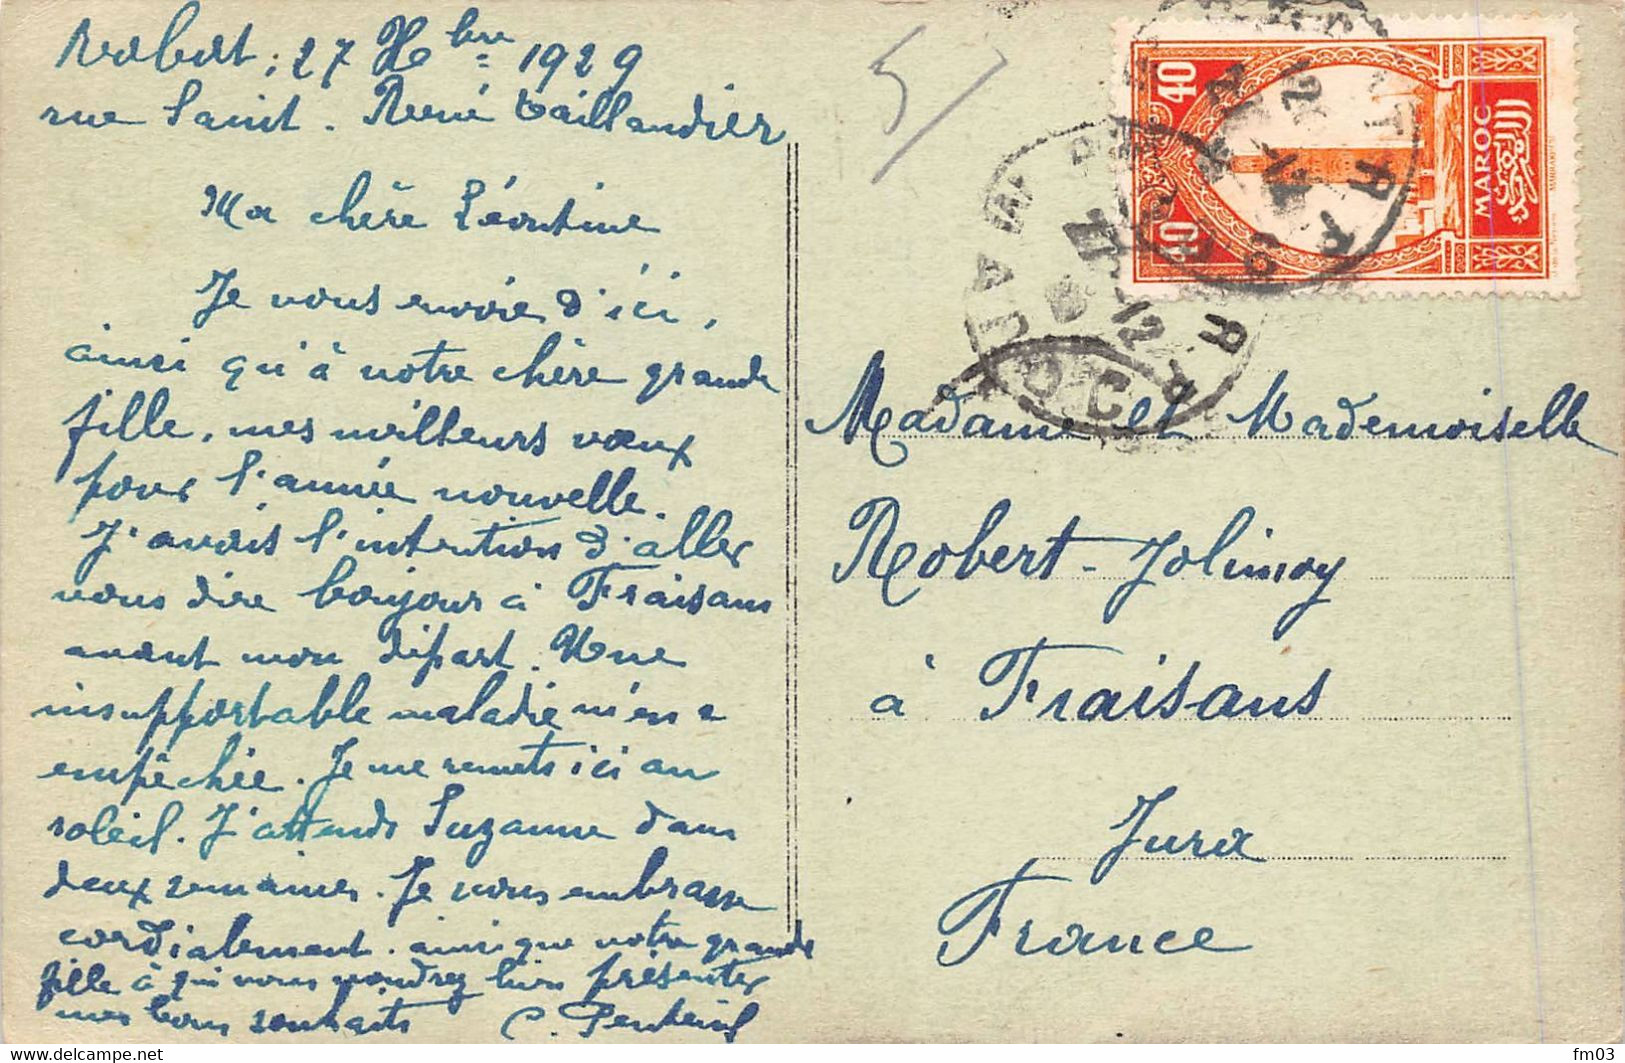 Rabat, 27 Xbre 1929
rue Saint. René Taillandier
Ma chère Léontine
Je vous envoie d'ici,
ainsi qu'à votre chère grande
fille, mes meilleurs vœux
pour l'année nouvelle.
J'avais l'intention d'aller
vous dire bonjour à Fraisans
avant mon départ. Une
insupportable maladie m'en a
empêchée. Je me remets ici au
soleil. J'attends Suzanne dans
deux semaines. Je vous embrasse
cordialement. ainsi que votre grande
fille à qui vous voudrez bien présenter
mes bons souhaits C.
5/
40
40
MAROC
MARRAKECH
Madame et Mademoiselle
Robert-Jolimoy
à Fraisans
Jura
France
fm03